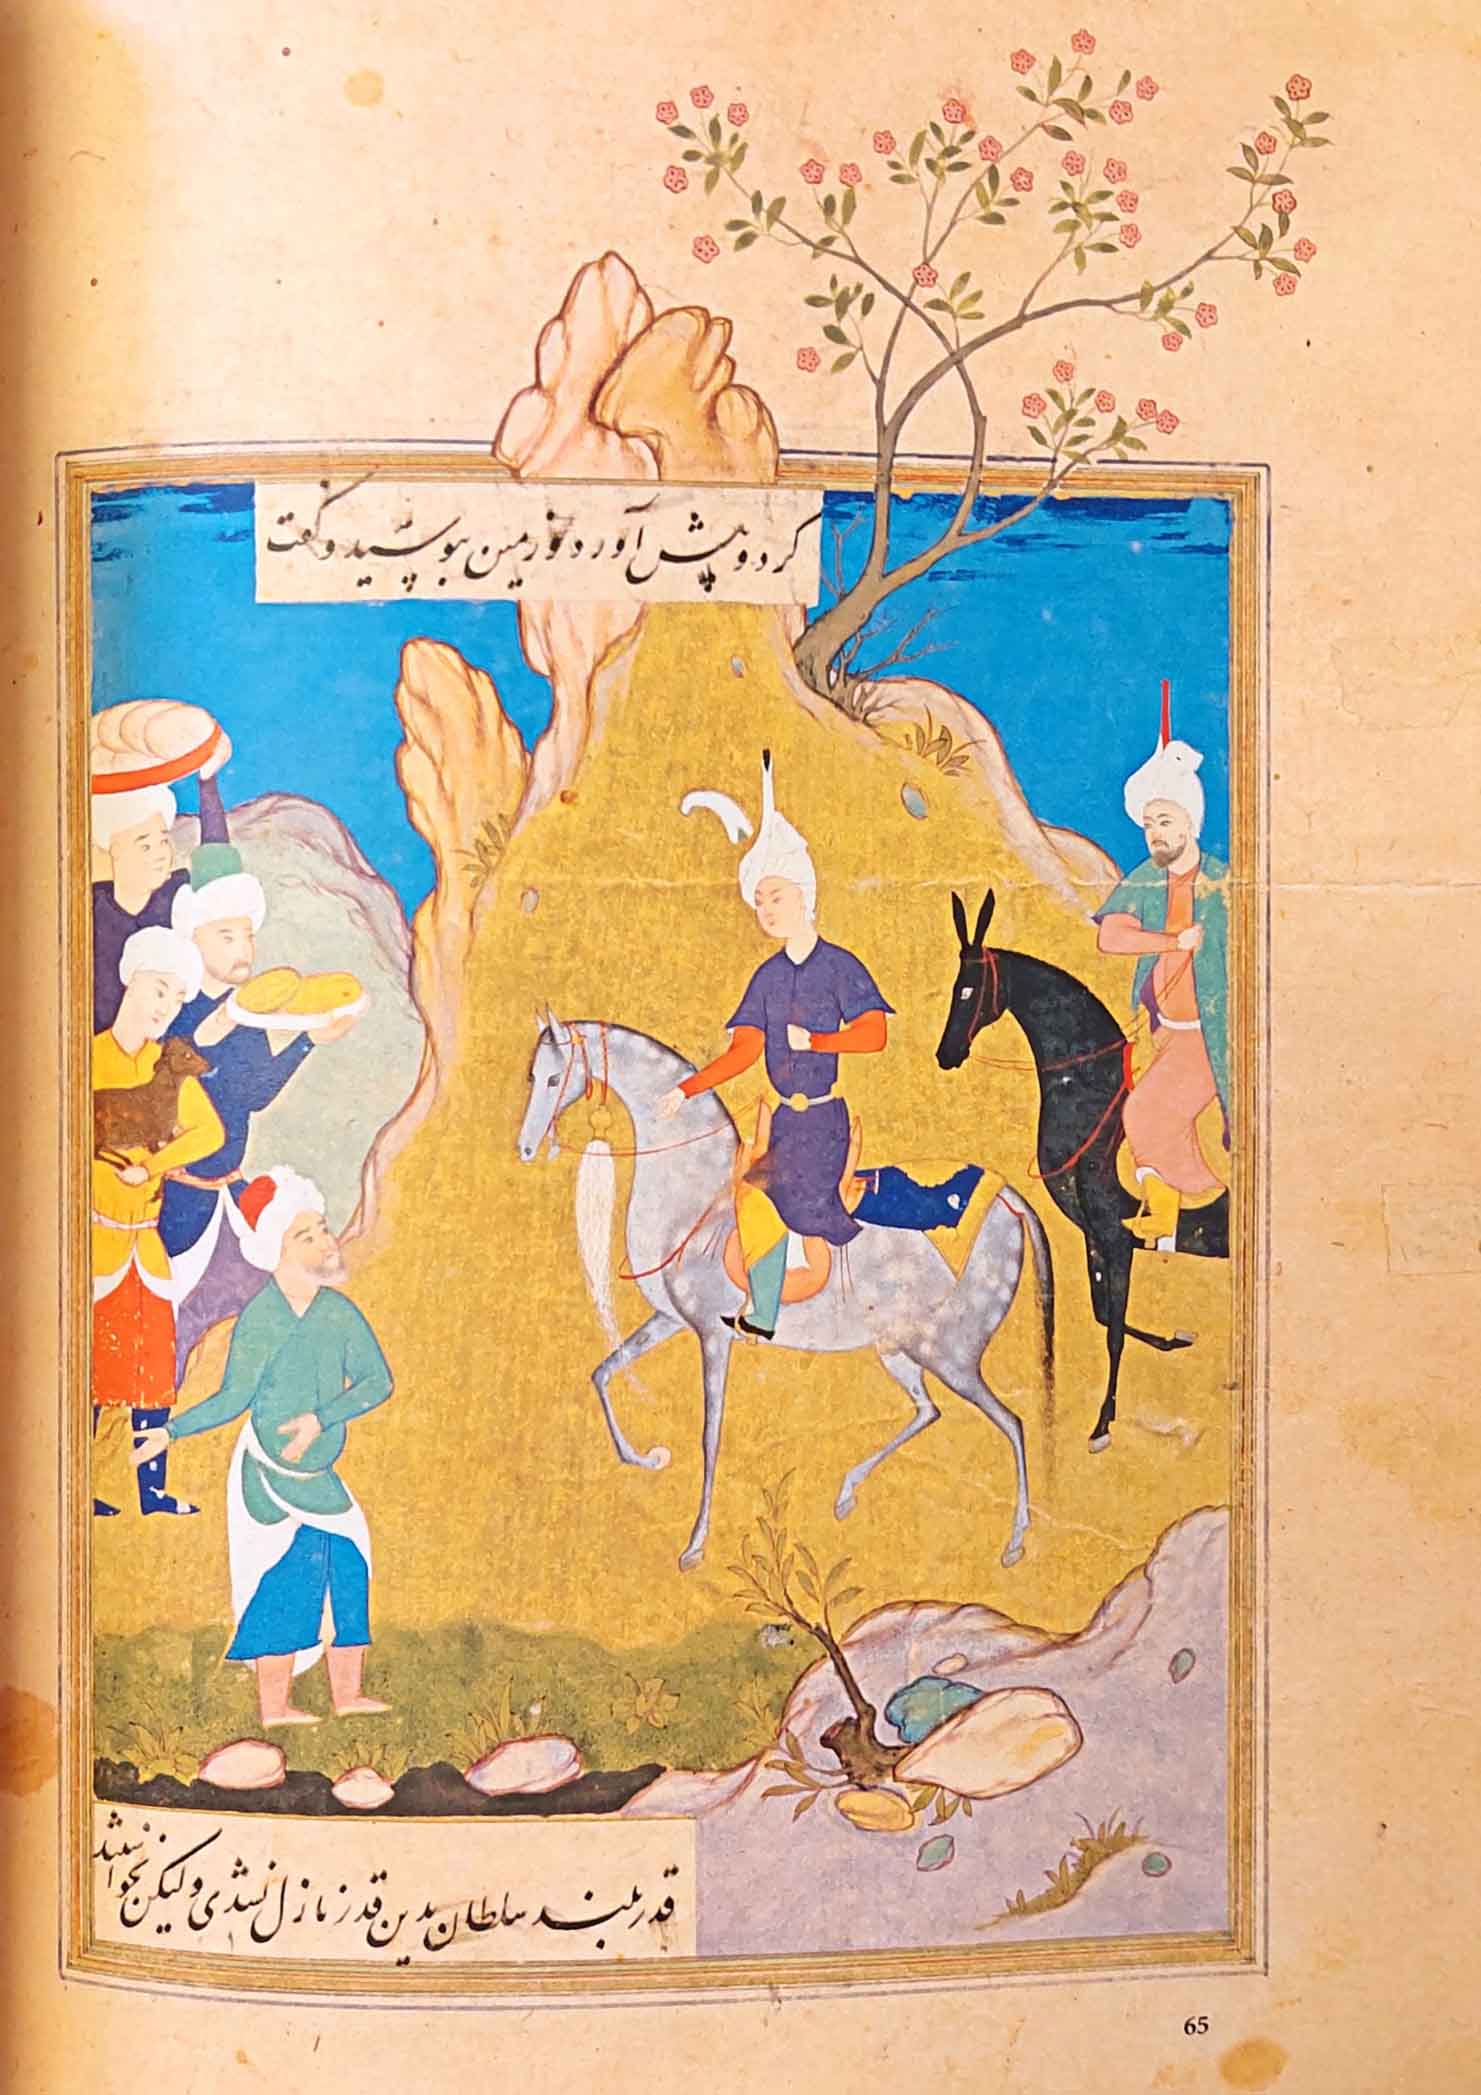 کرد و پیش آورد و زمین ببوسید و گفت
قدر بلند سلطان بدین قدر نازل نشدی ولیکن نخواستند
65